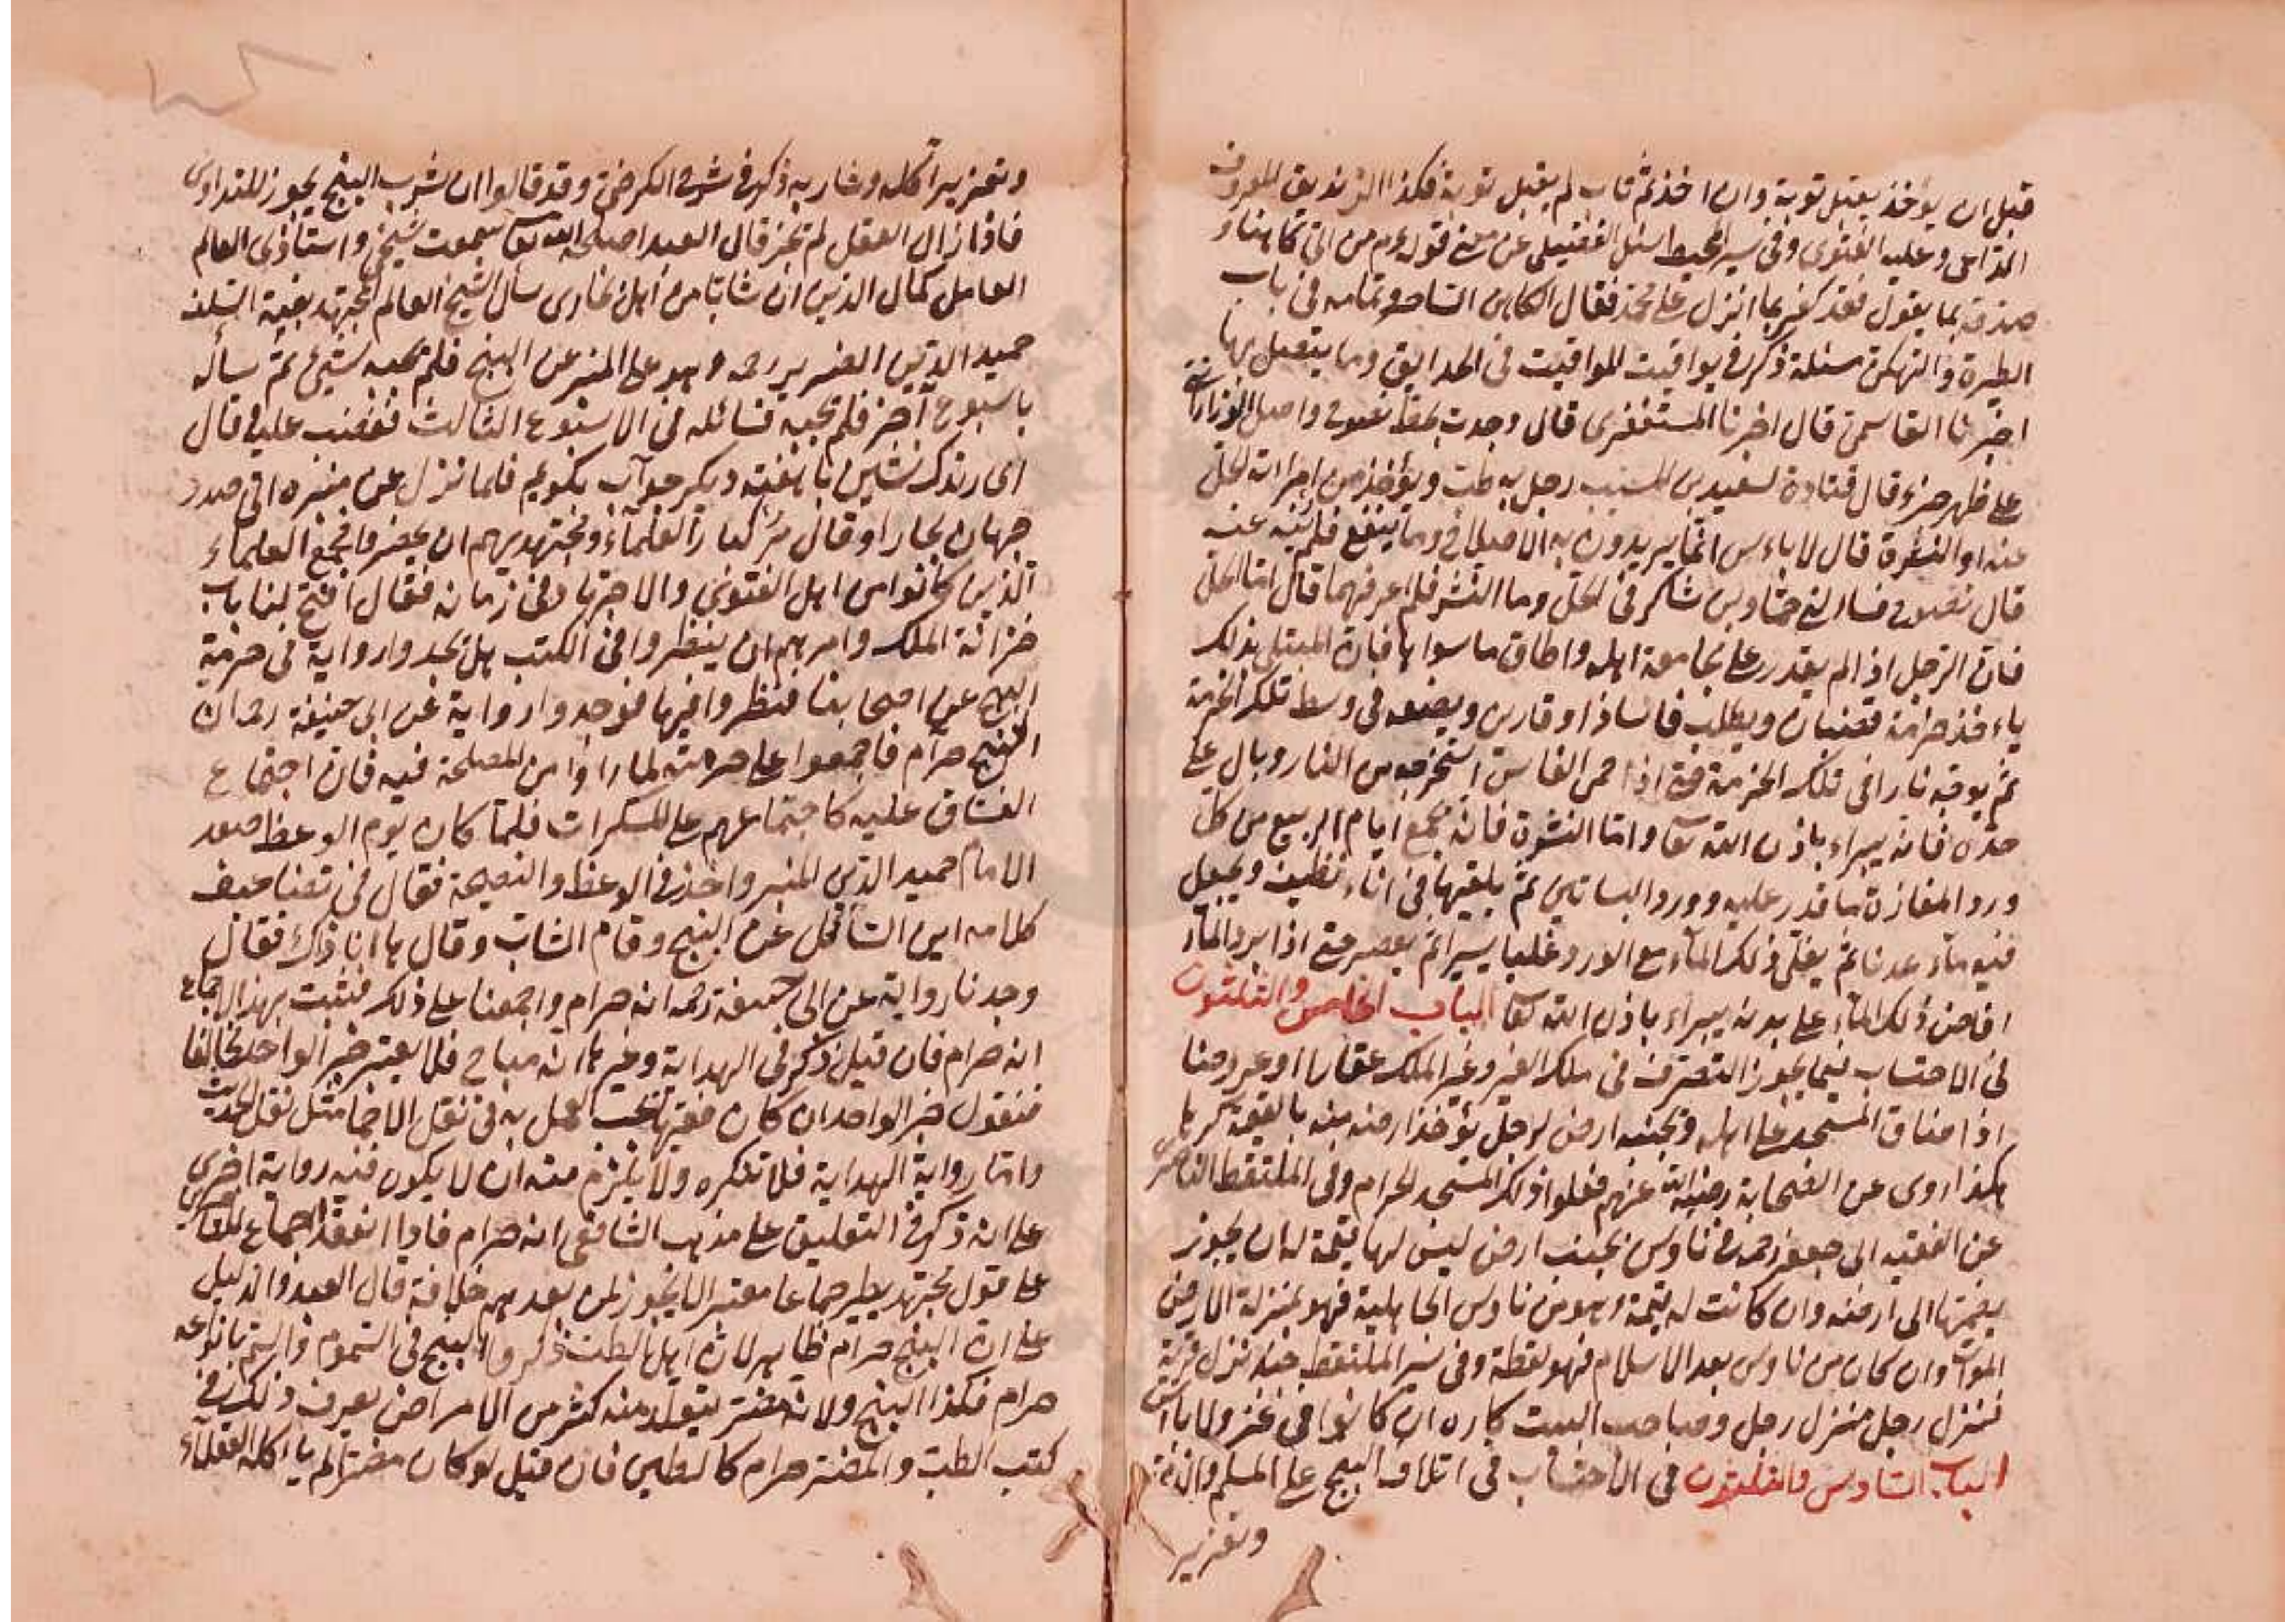 قبل ان يؤخذ يقبل توبته وان اخذ ثم تاب لم يقبل توبته فكذا الزنديق المعروف
الداعى وعليه الفتوى وفى سير المحيط سئل الفضيلى عن معنى قوله عم من اتى كاهنا و
صدقه بما يقول فقد كفر بما انزل على محمد فقال الكاهن الساحر وتمامه فى باب
الطيرة والتهكن مسئلة ذكر فى يواقيت المواقيت فى الحدايق وما يتصل بها
اخبرنا القاسمى قال اخبرنا المستغفرى قال وجدت بخط نصوح واصل
على ظهر جزء قال قتادة لسعيد بن المسيب رجل به طب ويؤخذ من امراته الحل
عنه او النشرة قال لا باءس انما يريدون به الاصلاح وما ينفع فلم ينه عنه
قال نصوح فساءلنى حماد بن شاكر فى الحل وما النشر فلم اعرفهما قال اما الحل
فان الرجل اذا لم يقدر على مجامعة اهله واطاق ما سواها فان المبتلى بذلك
ياءخذ حزمة قضبان ويطلب فاسا ذا وقارين ويضعه فى وسط تلك الحزمة
ثم يوقد نارا فى تلك الحزمة حتى اذا حمى الفاس استخرجه من النار وبال على
حده فانه يبراء باذن الله تعا واما النشرة فانه يجمع ايام الربيع من كل
ورد المفازة ما قدر عليه وورد البساتين ثم يلقيها فى اناء نظيف ويجعل
فيه ماء عذبا ثم يغلى ذلك الماء مع الورد غليا يسيرا ثم يعصر حتى اذا برد الماء
افاض ذلك الماء على بدنه يبراء باذن الله تعا الباب الخامس والثلثون
فى الاحتساب فيما يجوز التصرف فى ملك الغير وغير الملك عقارا او عروضا
اذا ضاق المسجد على اهله وبجنبه ارض لرجل يؤخذ ارضه منه بالقيمة كرها
هكذا روى عن الصحابة رضى الله عنهم فعلوا ذلك المسجد الحرام وفى الملتقط الناصرى
عن الفقيه ابى جعفر رحمه فى ناوس بجنب ارض ليس لها قيمة له ان يجوز
يضمها الى ارضه وان كانت له قيمة وهو من ناوس الجاهلية فهو بمنزلة الارض
الموات وان كان من ناوس بعد الاسلام فهو لقطة وفى سير الملتقط جند نزل قرية
فنزل رجل منزل رجل وصاحب البيت كاره ان كانوا فى غزو لا باس
الباب السادس والثلثون فى الاحتساب فى اتلاف البنج على المسلم والذمى
وتعزير
وتعزير آكله وشاربه ذكر فى شرح الكرخى وقد قالوا ان شرب البنج يجوز للتداوى
فاذا زال العقل لم يجز قال العبد اصلحه الله تعا سمعت شيخى واستاذى العالم
العامل كمال الدين ان شابا من اهل بخارى سأل الشيخ العالم المجتهد بقية السلف
حميد الدين الضرير رحمه وهو على المنبر عن البنج فلم يجبه شيئ ثم سأله
باسبوع آخر فلم يجبه فسائله فى الاسبوع الثالث فغضب عليه قال
اى رندك بنشين تا هفته ديكر جوآب بكويم فلما نزل عن منبره اتى صدر
جهان بخارا وقال مر كبار العلماء ومجتهديهم ان يحضروا فجمع العلماء
الذين كانوا من اهل الفتوى والاجتهاد فى زمانه فقال افتح لنا باب
خزانة الملك وامرهم ان ينظروا فى الكتب هل تجدوا رواية فى حرمة
البنج عن اصحابنا فنظروا فيها فوجدوا رواية عن ابى حنيفة رحمه ان
البنج حرام فاجمعوا على حرمته لما راوا من المصلحة فيه فان اجتماع
الفساق عليه كاجتماعهم على المسكرات فلما كان يوم الوعظ صعد
الامام حميد الدين المنبر واخذ فى الوعظ والنصيحة فقال فى تضاعيف
كلامه اين السائل عن البنج وقام الشاب وقال ها انا ذاك فقال
وجدنا رواية عن ابى حنيفة رحمه انه حرام واجمعنا على ذلك فثبت بهذا الاجماع
انه حرام فان قيل ذكر فى الهداية وغيرها انه مباح فلا يعتبر خبر الواحد مخالفا
فنقول خبر الواحد ان كان فقيها يجب العمل به فى نقل الاجماع مثل نقل الحديث
واما رواية الهداية فلا تنكره ولا يلزم منه ان لا يكون فيه رواية اخرى
على انه ذكر فى التعليق على مذهب الشافعى انه حرام فاذا انعقد اجماع
على قول مجتهد يصير جماعا معتبرا لا يجوز لمن بعدهم خلافة قال العبد والدليل
على ان البنج حرام ظاهر لان اهل الطب ذكروا البنج فى السموم والسم بانواعه
حرام فكذا البنج ولانه مضر يتولد منه كثر من الامراض يعرف ذلك فى
كتب الطب والمضر حرام كالطين فان قيل لو كان مضرا لم ياكله العقلاء